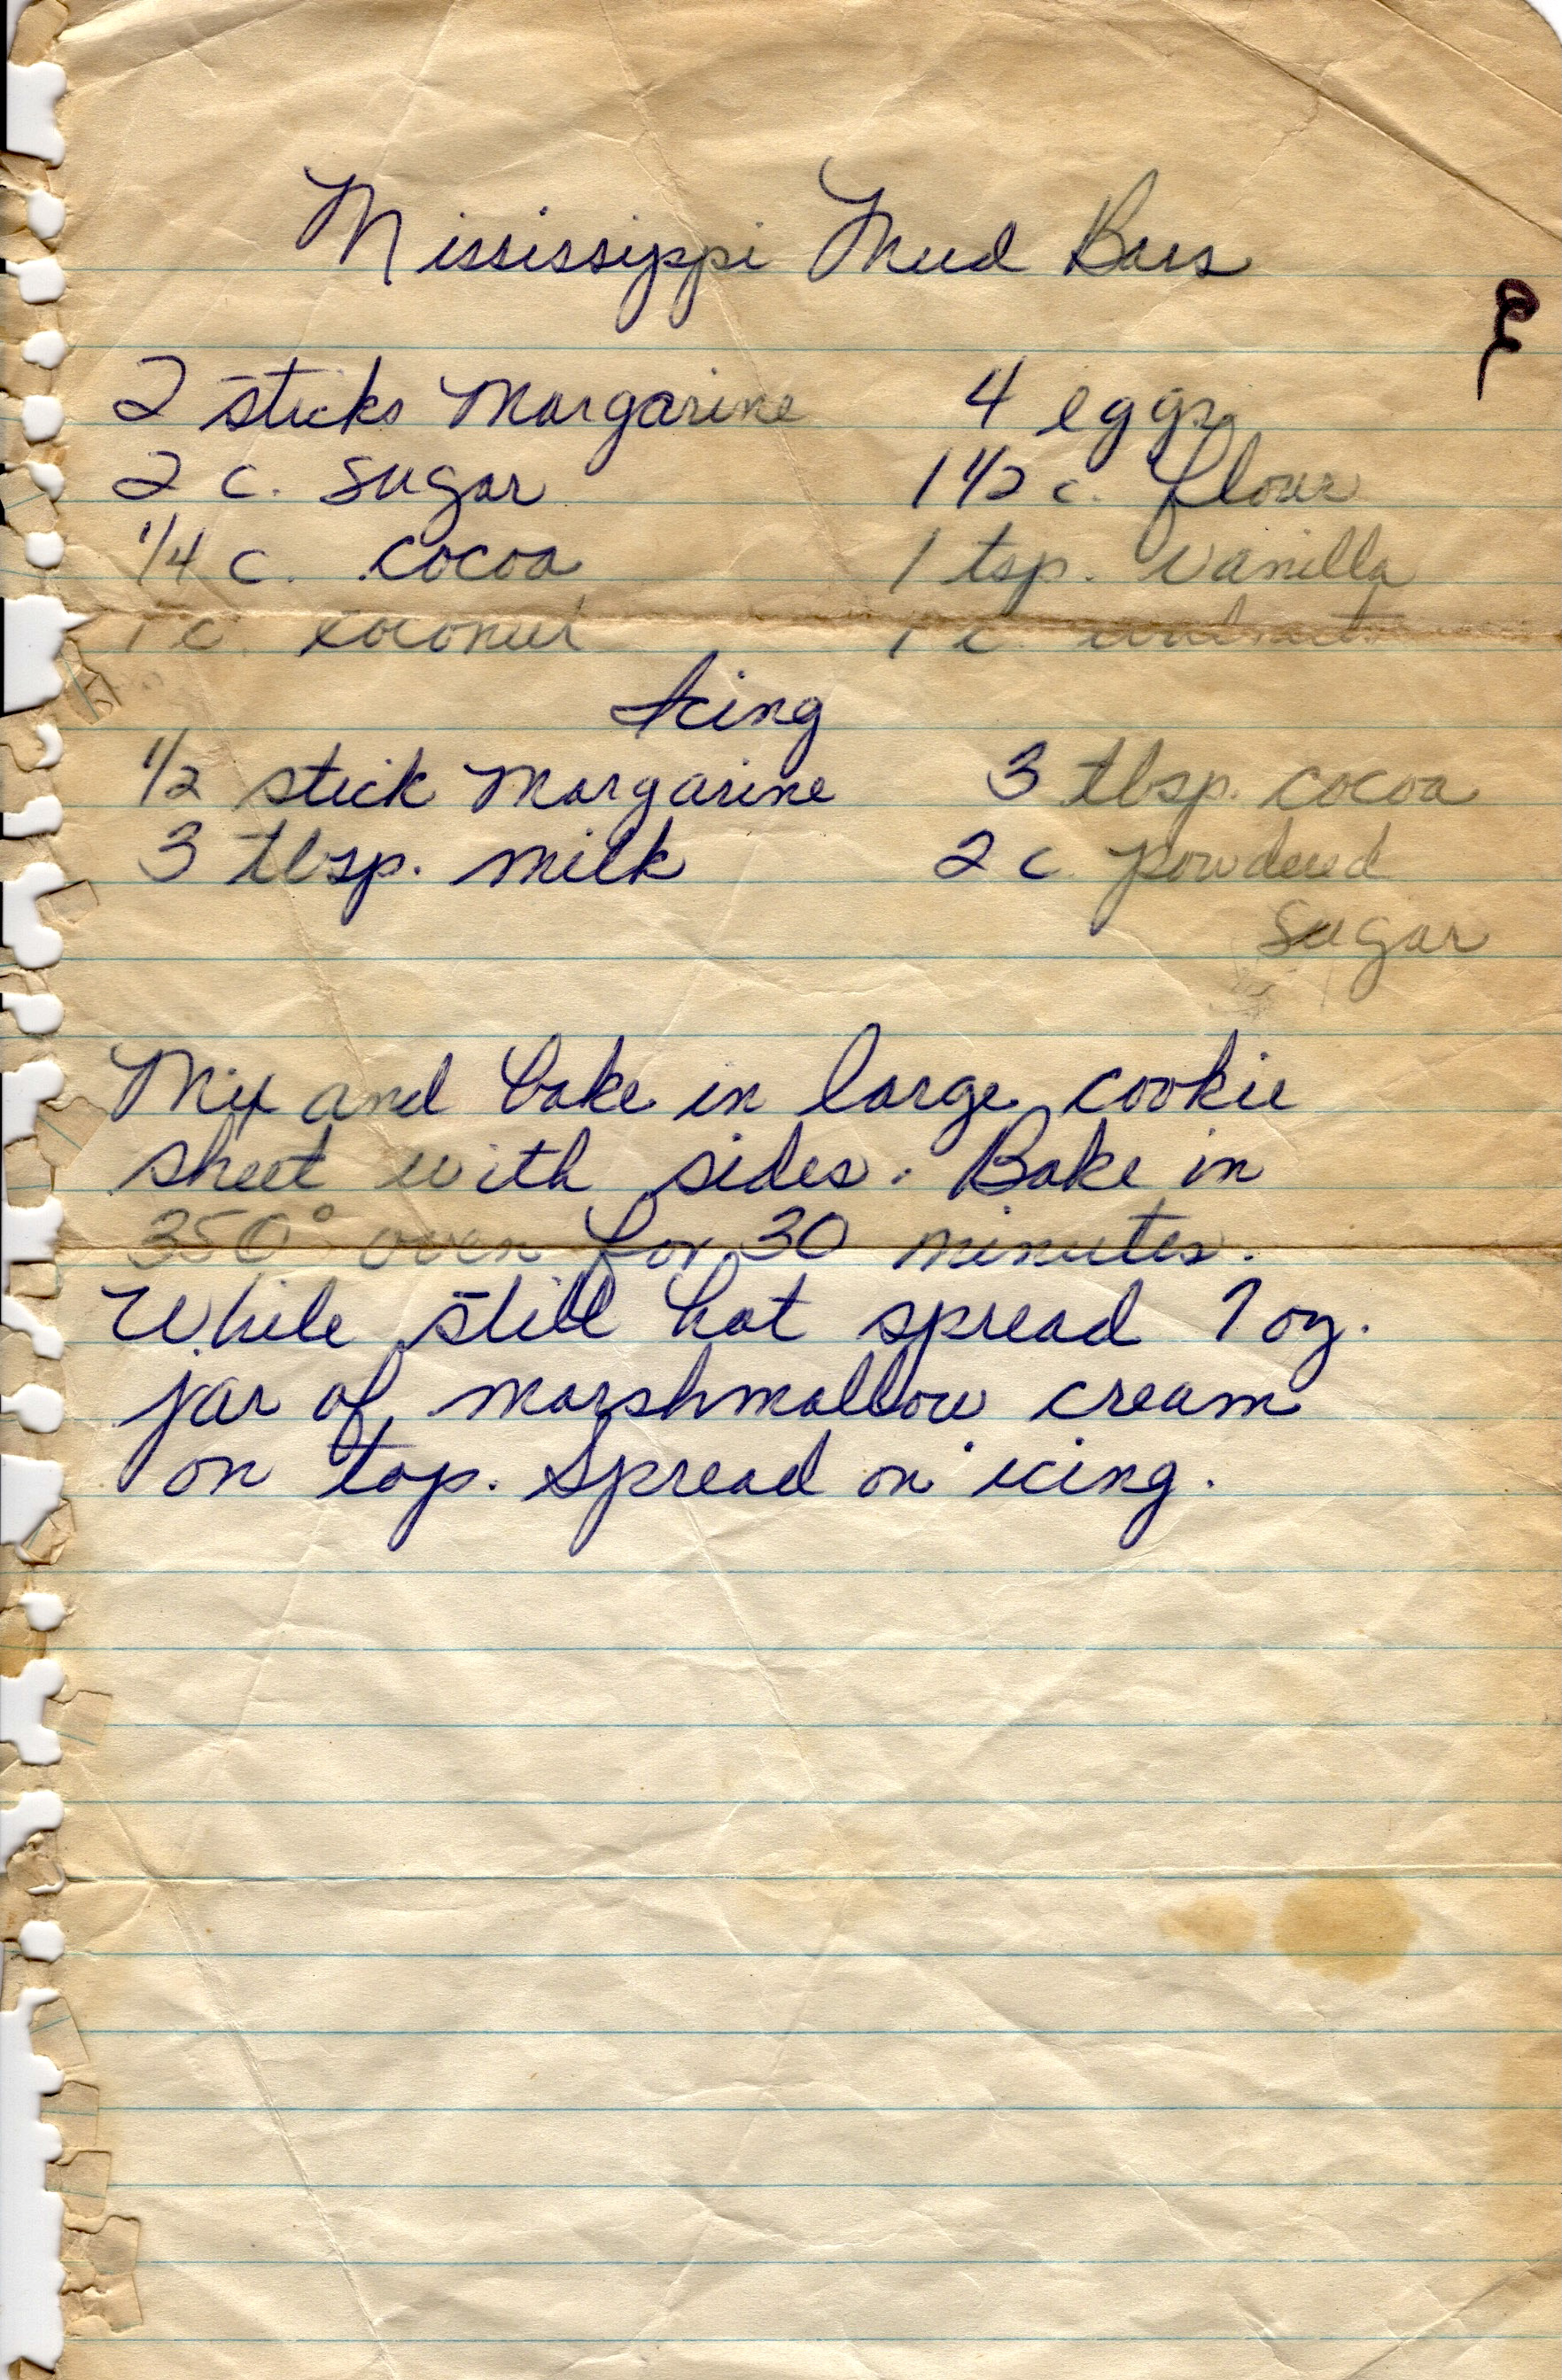 Mississippi Mud Bars
2 sticks Margarine 4 eggs
2 c. sugar 1 1/2 c. flour
1/4 c. cocoa 1 tsp. vanilla
1 c. coconut 1 c. walnuts
Icing
1/2 stick Margarine 3 tbsp. cocoa
3 tbsp. milk 2 c. powdered
sugar
Mix and bake in large cookie
sheet with sides. Bake in
350° oven for 30 minutes.
While still hot spread 7 oz.
jar of marshmallow cream
on top. Spread on icing.